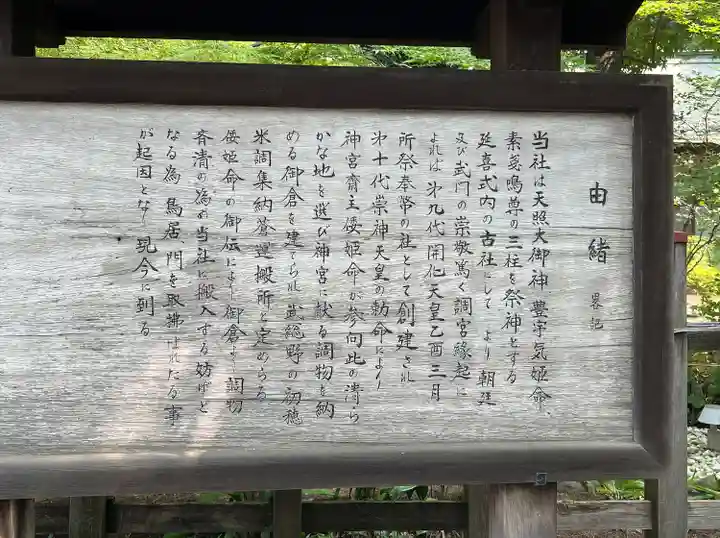 由緒 畧記
当社は天照大御神 豊宇気姫命、
素戔鳴尊の三柱を祭神とする
延喜式内の古社にして より朝廷
及び武門の崇敬篤く調宮縁起に
よれば 第九代開化天皇乙酉三月
所祭奉幣の社として創建され
第十代崇神天皇の勅命により
神宮斎主倭姫命が参向此の清ら
かな地を選び神宮に献る調物を納
める御倉を建てられ武総野の初穂
米調集納蒼運搬所と定めらる
倭姫命の御伝により御倉より調物
斉清の為 当社に搬入する妨げと
なる為鳥居、門を取拂はれたる事
が起因となり現今に到る